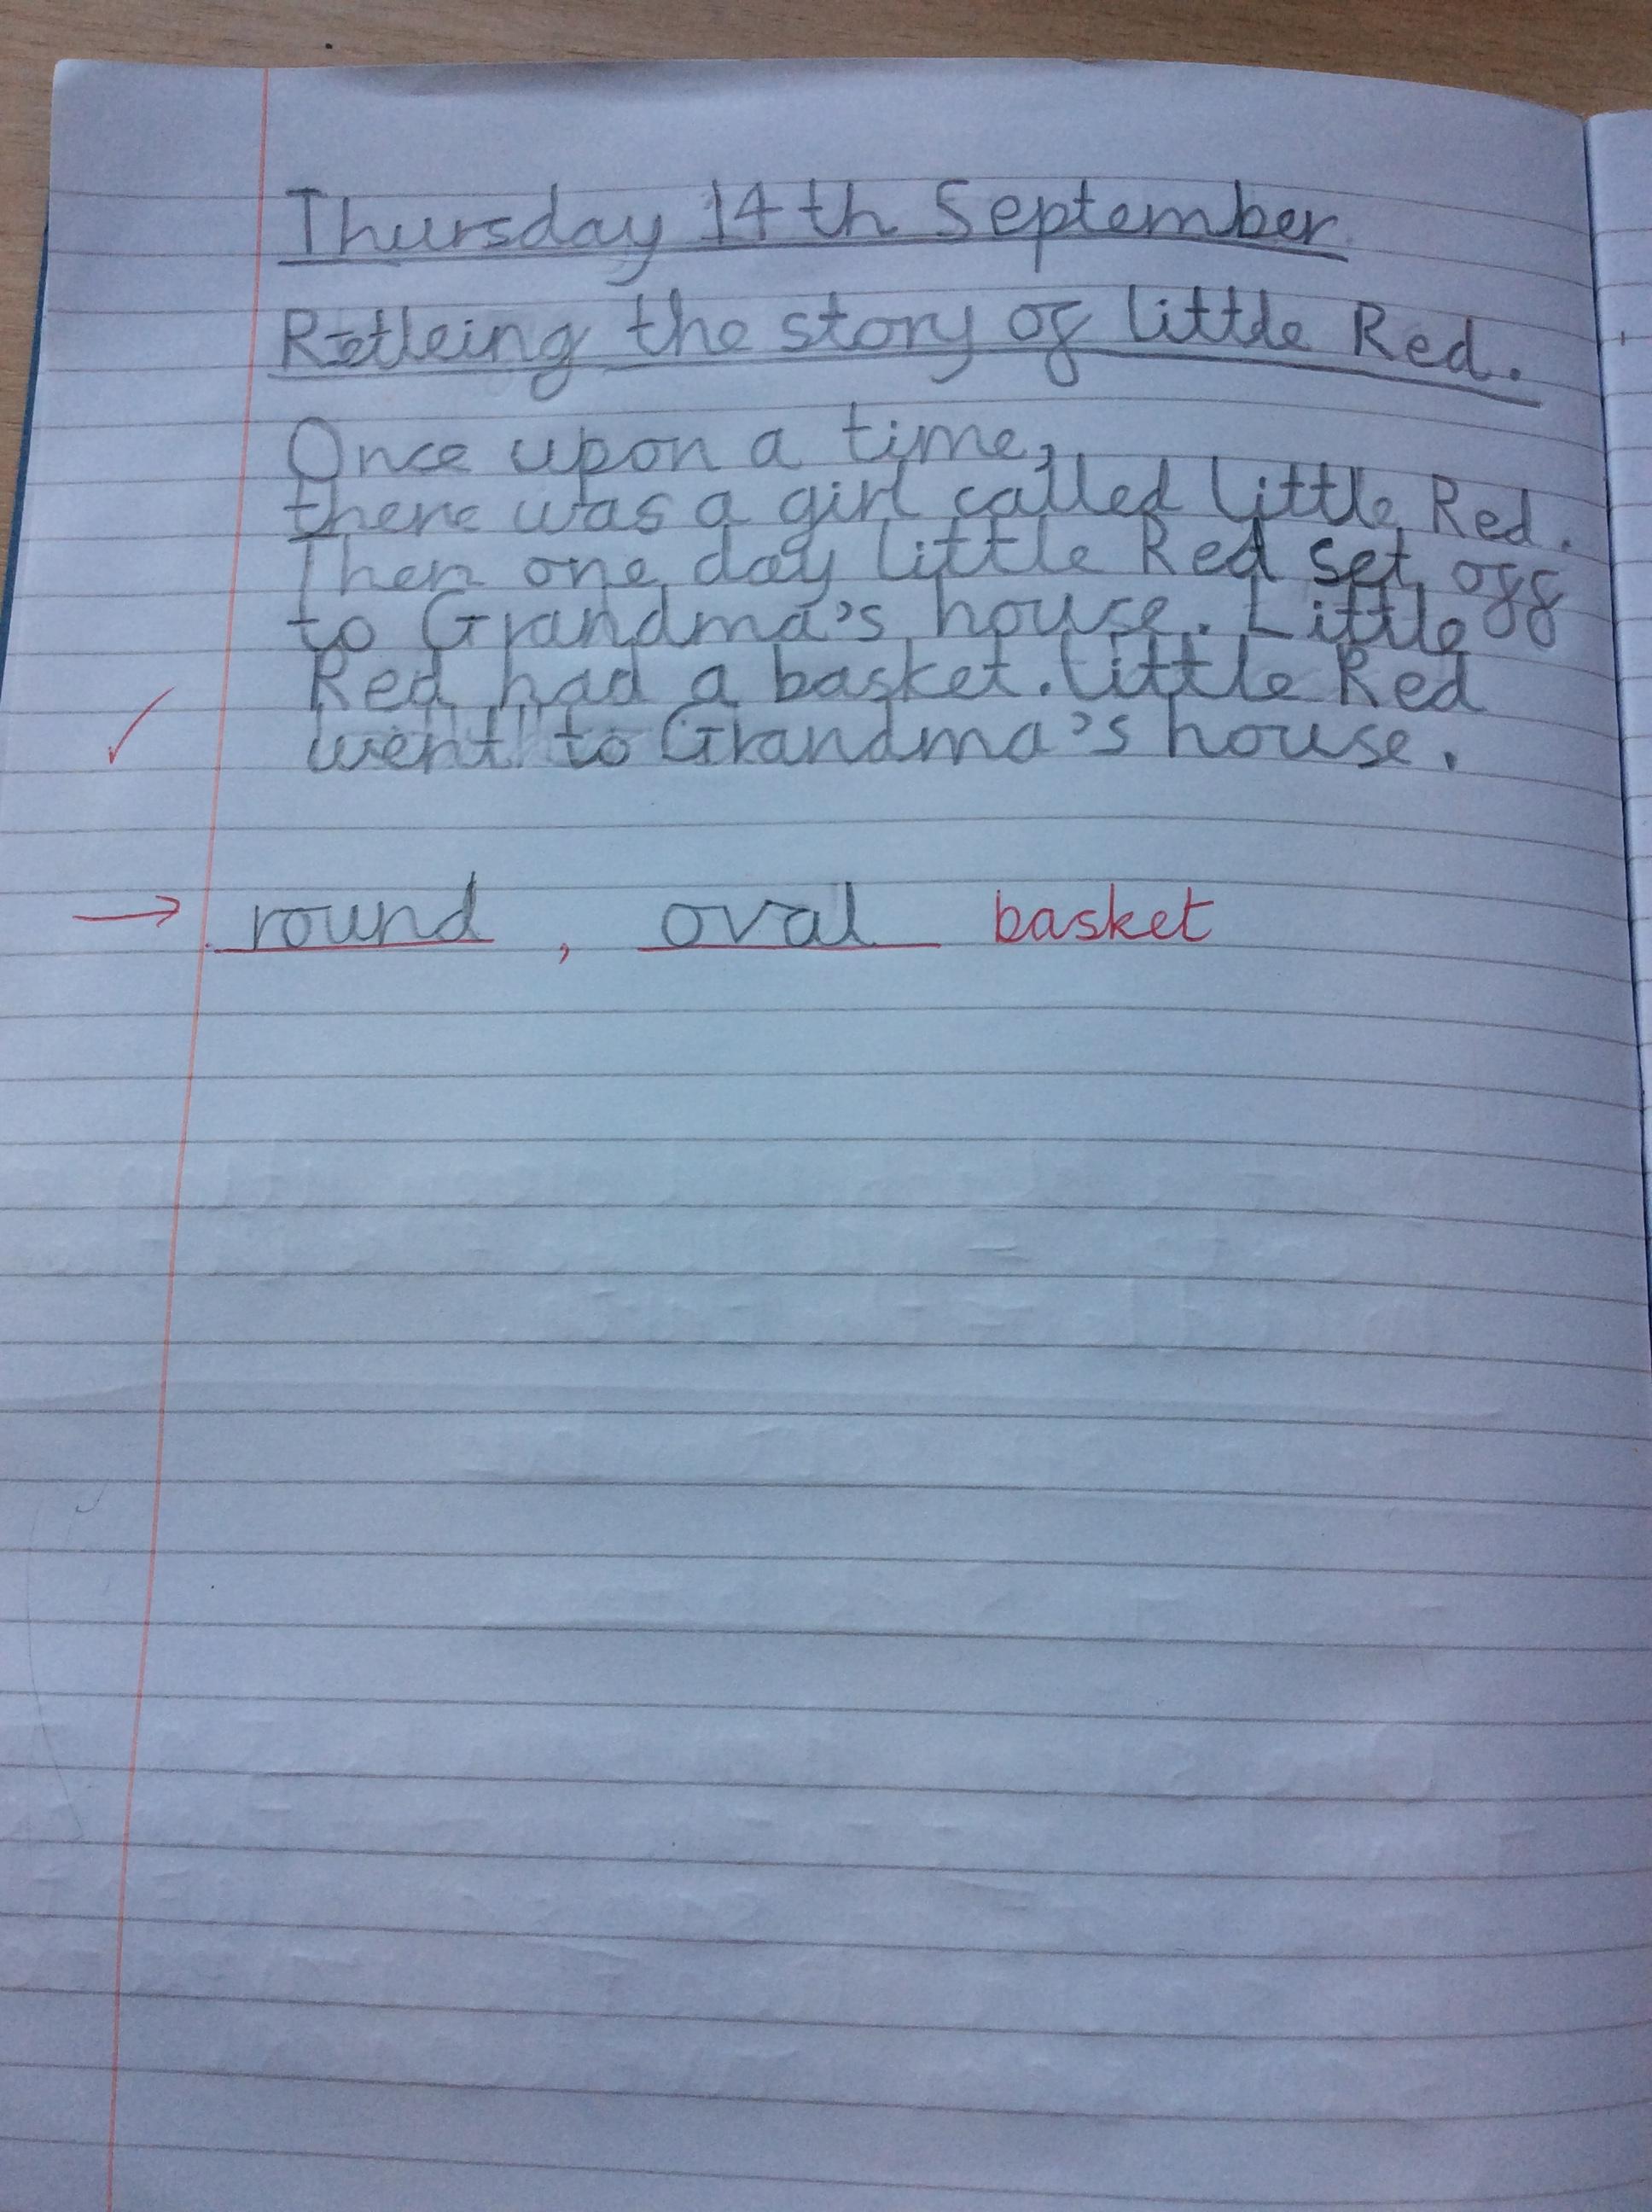 Thursday 14th September
Retleing the story of little Red.
Once upon a time,
there was a girl called little Red.
Then one day little Red set off
to Grandma's house. Little
Red had a basket. little Red
went to Grandma's house.
round , oval basket